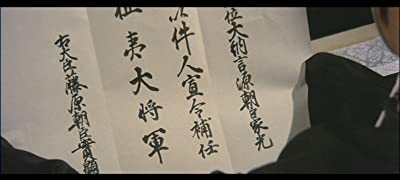 位大納言源朝臣家光
以件人宣令補任
征夷大将軍
右大臣藤原朝臣實顕